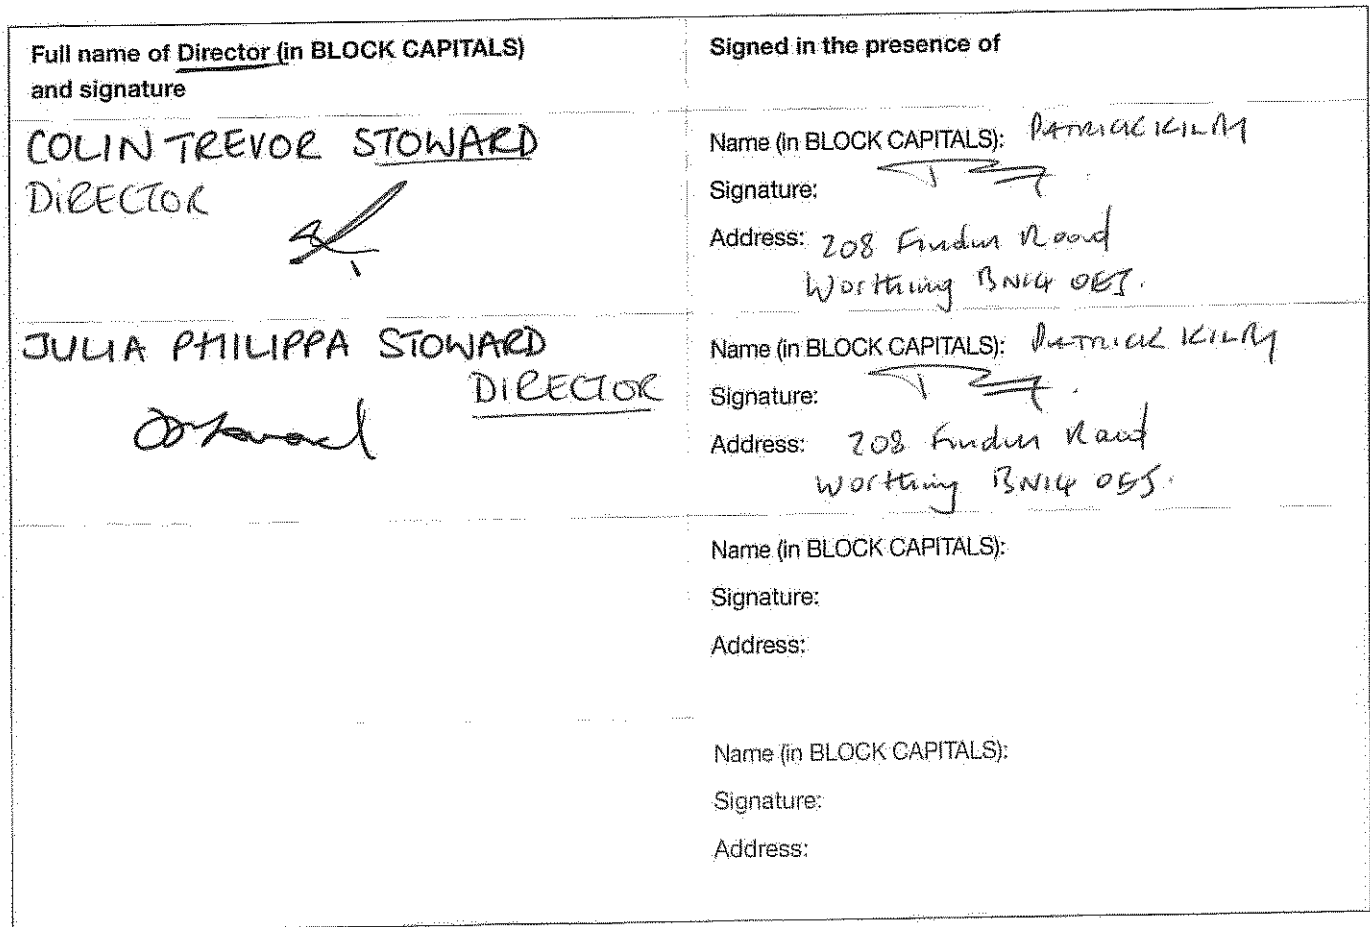 Full name of Director (in BLOCK CAPITALS)
and signature
Signed in the presence of
COLIN TREVOR STOWARD
DIRECTOR
Name (in BLOCK CAPITALS): PATRICK
Signature:
Address: 208 Findon Road
Worthing BN14 0EJ.
JULIA PHILIPPA STOWARD
DIRECTOR
Name (in BLOCK CAPITALS): PATRICK
Signature:
Address: 208 Findon Road
Worthing BN14 0EJ.
Name (in BLOCK CAPITALS):
Signature:
Address:
Name (in BLOCK CAPITALS):
Signature:
Address: